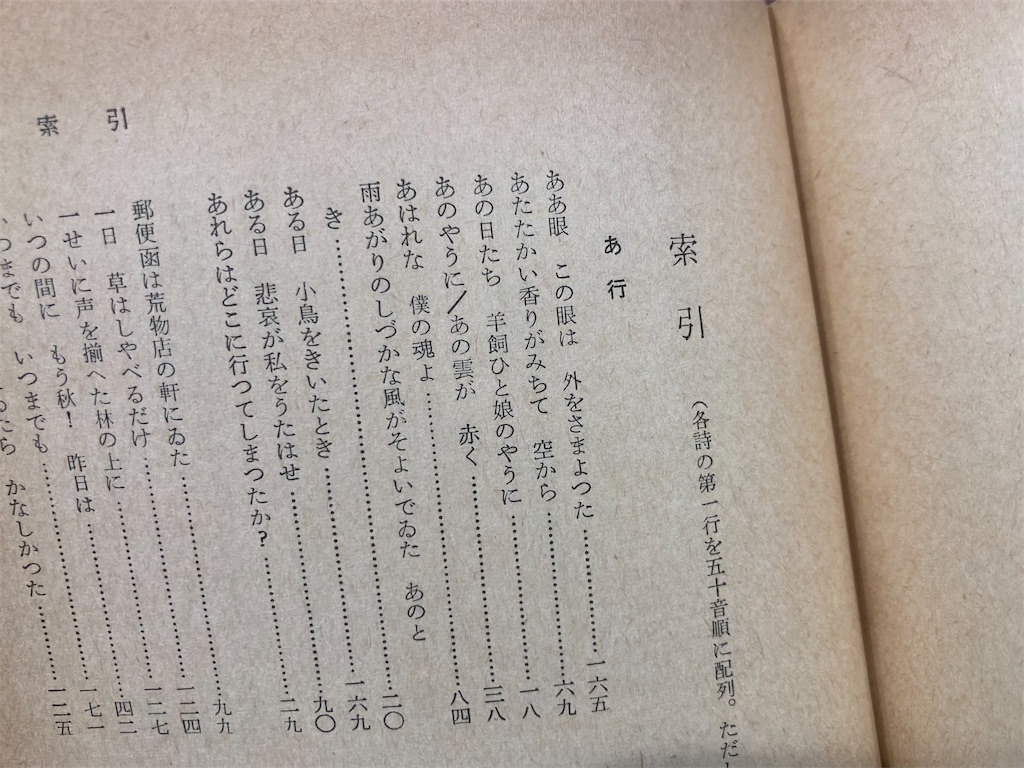 索引
索引
（各詩の第一行を五十音順に配列。ただ
あ行
ああ眼　この眼は　外をさまよつた……………一六五
あたたかい香りがみちて　空から……………六九
あの日たち　羊飼ひと娘のやうに……………一八
あのやうに／あの雲が　赤く……………三八
あはれな　僕の魂よ……………八四
雨あがりのしづかな風がそよいでゐた　あのと
き……………二〇
ある日　小鳥をきいたとき……………一六九
ある日　悲哀が私をうたはせ……………九〇
あれらはどこに行つてしまつたか？……………二九
郵便函は荒物店の軒にゐた……………九九
一日　草はしやべるだけ……………一二四
一せいに声を揃へた林の上に……………一二七
いつの間に　もう秋！　昨日は……………四二
いつまでも　いつまでも……………一七一
かなしかつた……………一二五